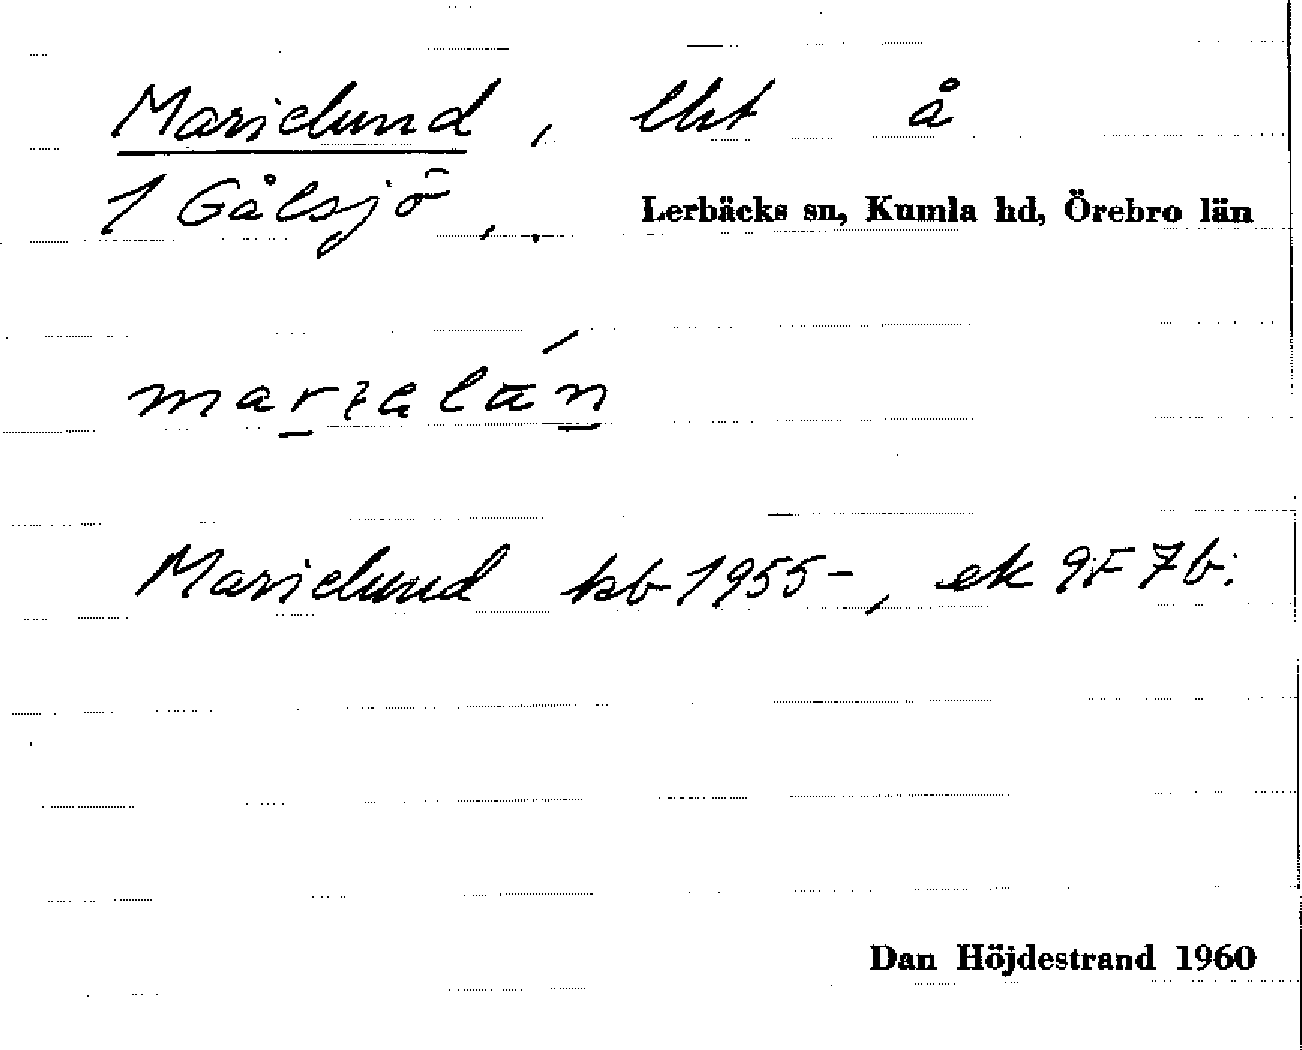 Marielund, lht å
1 Gålsjö,.
Lerbäcks sn, Kumla hd, Örebro län
Marielund kb 1955-, ek 9F 7b:
Dan Höjdestrand 1960